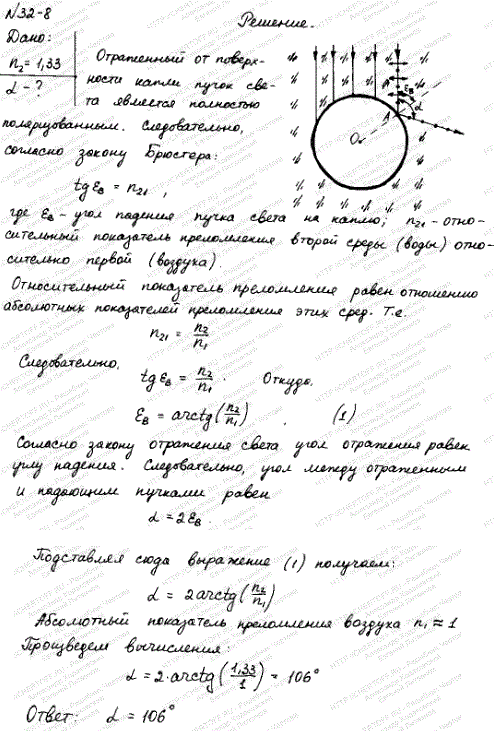 №32-8
Решение.
Дано:
n₂ = 1,33
α - ?
Отраженный от поверх-
ности капли пучок све-
та является полностью
поляризованным. Следовательно,
согласно закону Брюстера:
tgεв = n₂₁ ,
где εв - угол падения пучка света на каплю; n₂₁ - отно-
сительный показатель преломления второй среды (воды) отно-
сительно первой (воздуха).
Относительный показатель преломления равен отношению
абсолютных показателей преломления этих сред. Т.е.
n₂₁ = n₂/n₁
Следовательно,
tgεв = n₂/n₁ . Откуда,
εв = arctg(n₂/n₁) , (1)
Согласно закону отражения света угол отражения равен
углу падения. Следовательно, угол между отраженным
и падающим пучками равен
α = 2εв.
Подставляя сюда выражение (1) получаем:
α = 2arctg(n₂/n₁)
Абсолютный показатель преломления воздуха n₁ ≈ 1
Произведем вычисления:
α = 2·arctg(1,33/1) = 106°
Ответ: α = 106°
A
εв
α
O